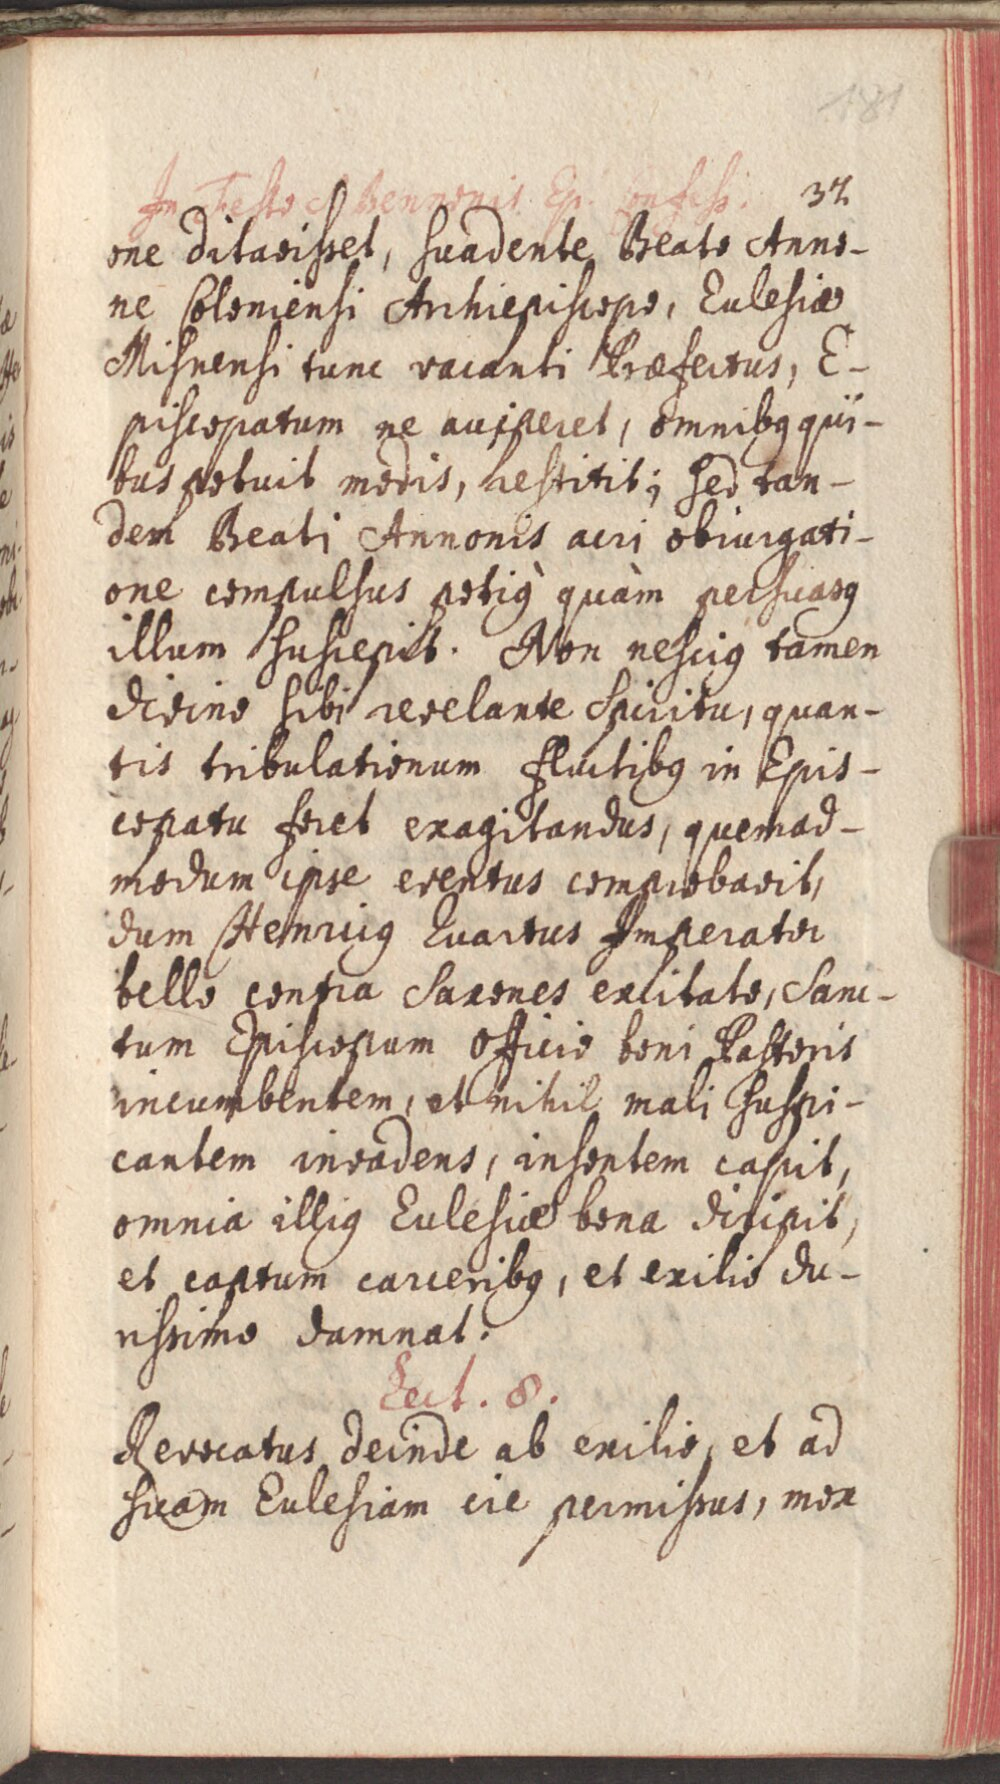 181
In Festo S. Bennonis Ep. Confess. 37.
one ditavisset, suadente Beato Anno-
ne Coloniensi Archiepiscopo, Ecclesiæ
Misnensi tunc vacanti Præfectus, E-
piscopatum ne acciperet, omnibꝰ qui-
bus potuit modis, restitit; sed tan-
dem Beati Annonis acri obiurgati-
one compulsus potiꝰ quàm persuasꝰ
illum suscepit. Non nesciꝰ tamen
divino sibi revelante Spiritu, quan-
tis tribulationum fluctibꝰ in Epis-
copatu foret exagitandus, quemad-
modum ipse eventus comprobavit,
dum Henricꝰ Quartus Imperator
bello contra Saxones excitato, Sanc-
tum Episcopum officio boni Pastoris
incumbentem, et nihil mali suspi-
cantem invadens, insontem capit,
omnia illiꝰ Ecclesiæ bona diripit,
et captum carceribꝰ, et exilio du-
rissimo damnat.
Lect. 8.
Revocatus deinde ab exilio, et ad
suam Ecclesiam ire permissus, mox